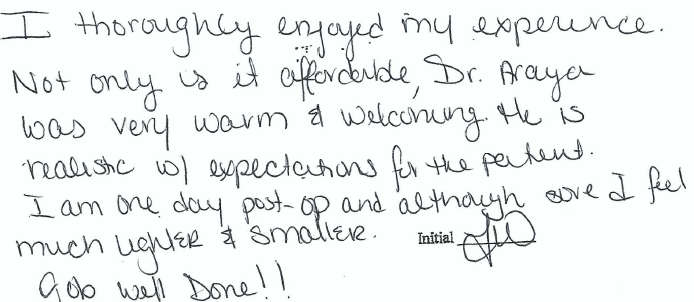 I thoroughly enjoyed my experience.
Not only is it affordable, Dr. Araya
was very warm & welcoming. He is
realistic w/ expectations for the patient.
I am one day post-op and although sore I feel
much lighter & smaller. Initial
Gob well Done!!